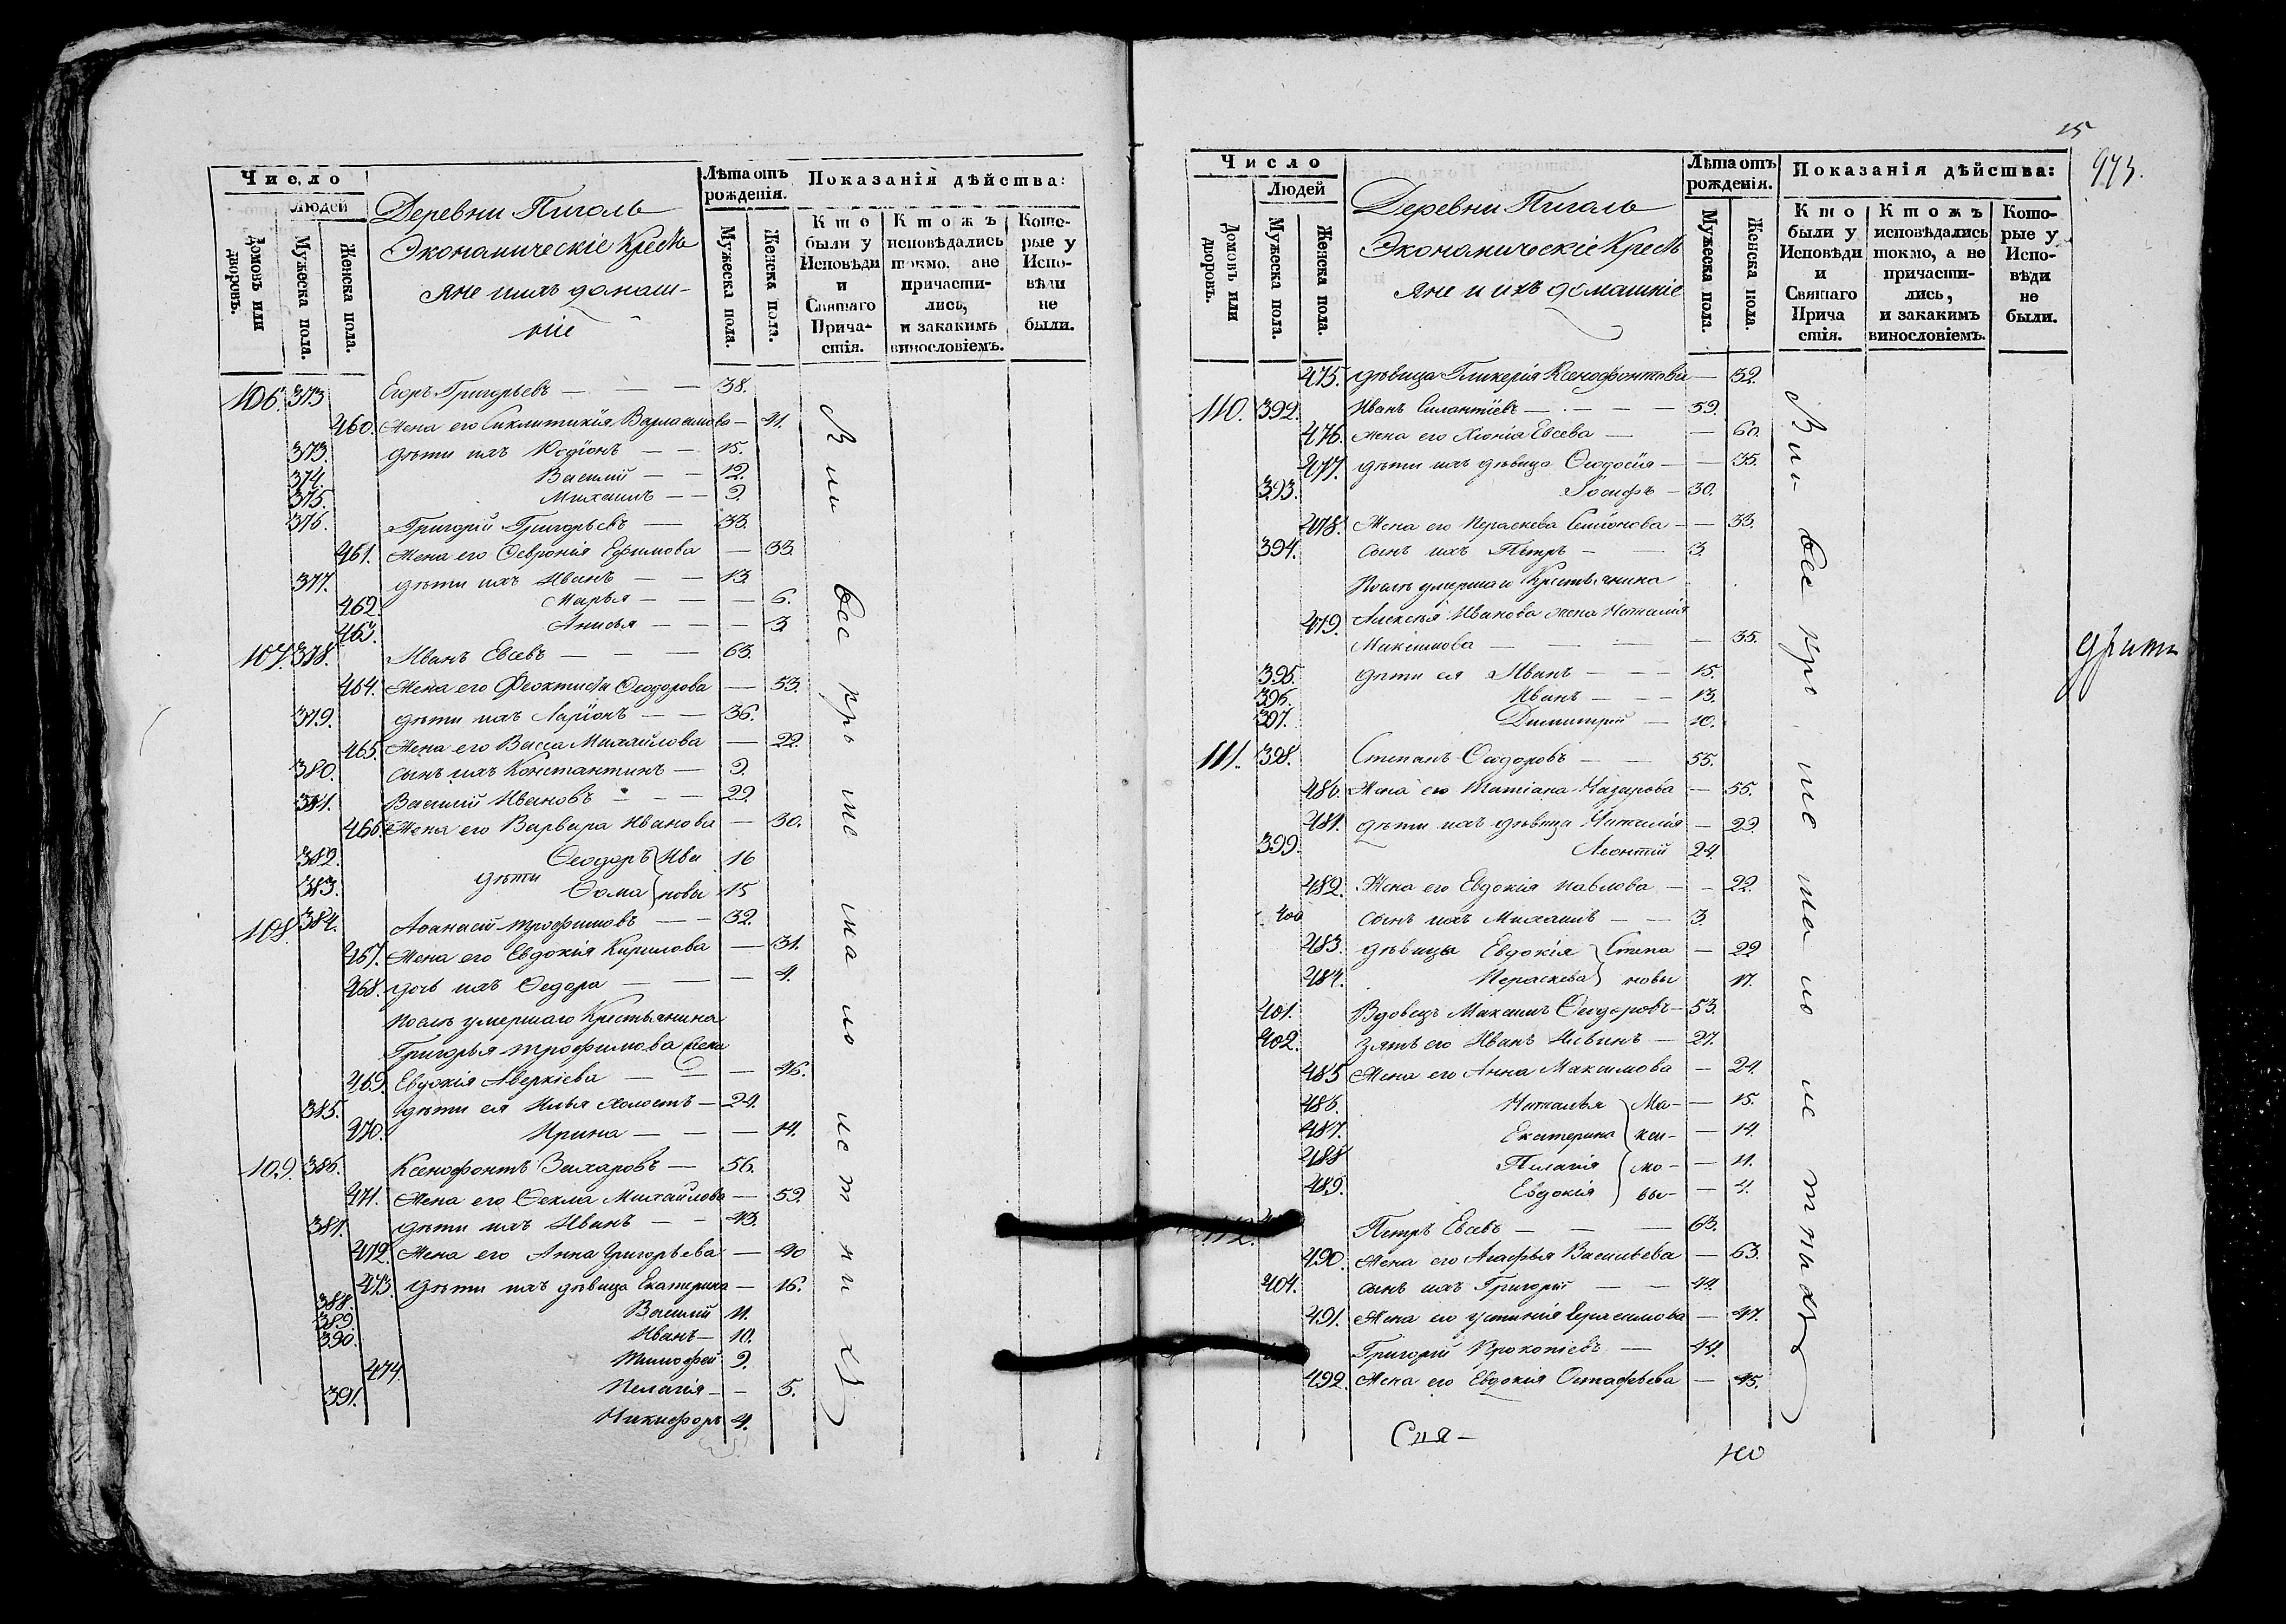 Число
Людей
Домовъ или дворовъ.
Мужеска пола.
Женска пола.
Деревни Пиголь
Экономическіе Кресть
яне ихъ домаш-
ніе
Лѣта отъ рожденія.
Мужеска пола.
Женска пола.
Показанія дѣйства:
Кто были у Исповѣди и Святаго Прича-стія.
Ктожъ исповѣдались токмо, а не причасти-лись, и закакимъ винословіемъ.
Кото-рые у Испо-вѣди не были.
106. 373 Егоръ Григорьевъ — — — 38.
460. Жена его Сиклитикія Варламова — 41.
373. дѣти ихъ Родіонъ — — 15.
374. Василій — — 12.
375. Михаилъ — — 9.
376. Григорій Григорьевъ — 33.
461. Жена его Ѳевронія Ефимова — 33.
377. дѣти ихъ Иванъ — — 13
462. Марья — — — 6.
463. Анисья — — — 3.
107. 378. Иванъ Евсевъ — — — 63.
464. Жена его Феоктиста Ѳеодорова — 53.
379. дѣти ихъ Ларіонъ — — 36.
465. Жена его Васса Михайлова — 22.
380. сынъ ихъ Константинъ — 9.
381. Василій Ивановъ — — — 29.
466. Жена его Варвара Иванова — 30.
382. Ѳеодоръ Ива 16
дѣти
383. Ѳома новы 15
108. 384. Аѳанасій трофимовъ — — 32.
467. Жена его Евдокія Кирилова — 31.
468. дочь ихъ Ѳедора — — — 4.
послѣ умершаго Крестьянина
Григорья трофимова жена
469. Евдокія Аверкіева — — — 46.
385. дѣти ея Илья холостъ — 24.
470. Ирина — — — 14.
109. 386. Ксенофонтъ Захаровъ — 56.
471. Жена его Ѳекла Михайлова — 59.
387. дѣти ихъ Иванъ — — 43.
472. Жена его Анна Григорьева — 40
473. дѣти ихъ дѣвица Екатерина — 16.
388. Василій 11.
389. Иванъ — 10.
390. Тимофей 9.
474. Пелагія — — 5.
391. Никифоръ 4.
всѣ
15
973.
Число
Людей
Домовъ или дворовъ.
Мужеска пола.
Женска пола.
Деревни Пиголь
Экономическіе Кресть
яне и ихъ домашніе
Лѣта отъ рожденія.
Мужеска пола.
Женска пола.
Показанія дѣйства:
Кто были у Исповѣди и Святаго Прича стія.
Ктожъ исповѣдались токмо, а не причасти-лись, и закакимъ винословіемъ.
Кото-рые у Испо-вѣди не были.
475. дѣвица Гликерія Ксенофонтова — 32.
110. 392. Иванъ Силантіевъ — — — — 59.
476. жена его Хіонія Евсева — — 60.
477. дѣти ихъ дѣвица Ѳеодосія — — 35.
393. Іосифъ — 30.
478. Жена его Параскева Семіонова — — 33.
394. сынъ ихъ Петръ — — 3.
Послѣ умершаго Крестьянина
479. Алексѣя Иванова жена Наталія
Максимова — — — — 35.
395. дѣти ея Иванъ — — — 15.
396. Иванъ — — — 13.
397. Димитрій — 10.
111. 398. Степанъ Ѳеодоровъ — — 55.
480. Жена его Татіана Назарова — 55.
481. дѣти ихъ дѣвица Наталія — 29.
399. Леонтій 24.
482. Жена его Евдокія павлова — — 22.
400 сынъ ихъ Михаилъ — — 3.
483. дѣвицы Евдокія Степа — 22
484. Параскева новы 17.
401. Вдовецъ Максимъ Ѳеодоровъ — 53.
402. Зять его Иванъ — 27.
485 Жена его Анна Максимова — 24.
486. Наталья Ма- — 15.
487. Екатерина кси- — 14.
488 Пелагія мо- — 11.
489. Евдокія вы- — 4.
112. Петръ Евсевъ — — — 63.
490. Жена его Агафья Васильева — 63.
404. сынъ ихъ Григорій — — 44.
491. Жена его Устинія Герасимова — 47.
Григорій Прокопіевъ — 44.
492. Жена его Евдокія Остафьева — 45.
всѣ
Сея —